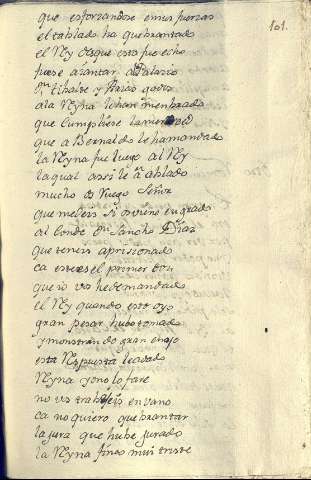 101.
que esforzandose en sus fuerzas
el tablado ha quebrantado
el Rey desque esto fue echo
fuese a iantar al Palacio
Dn Tibalte y Arias godos
a la Reyna le han membrado
que Cumpliese la merced
que a Bernaldo le ha mandado
la Reyna fue luego al Rey
la qual assi le a ablado
mucho os Ruego Señor
que me deis si os viene en grado
al Conde Dn Sancho Diaz
que teneis aprisionado
ca este es el primer don
que io vos he demandado
el Rey quando esto oyo
gran pesar hubo tomado
y monstrando gran enojo
esta Respuesta le a dado
Reyna yo no lo fare
no vos trabajeis en vano
ca no quiero quebrantar
la jura que hube jurado
la Reyna finco mui triste